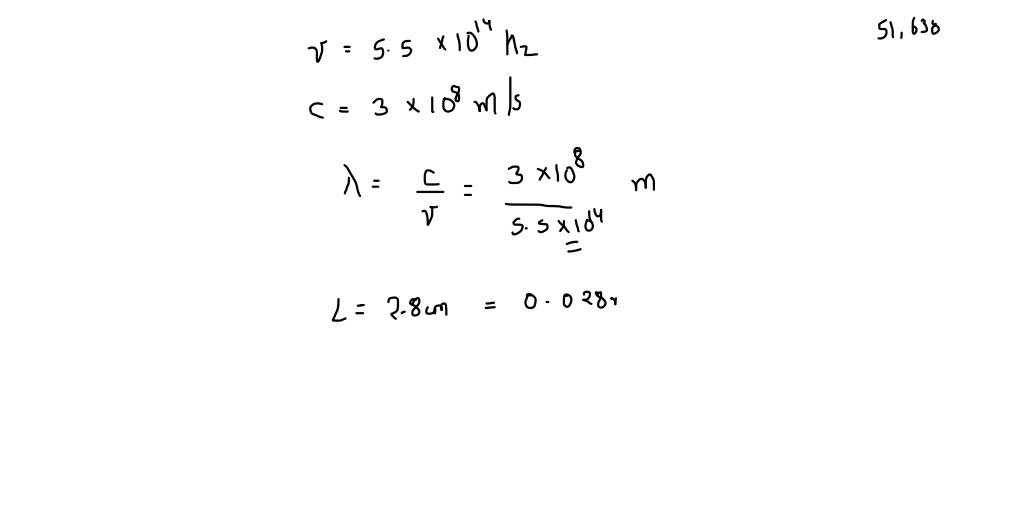 51,630
ν = 5.5 × 10¹⁴ hz
c = 3 × 10⁸ m/s
λ = c/ν = 3 × 10⁸ / 5.5 × 10¹⁴ m
L = 2.8 cm = 0.028